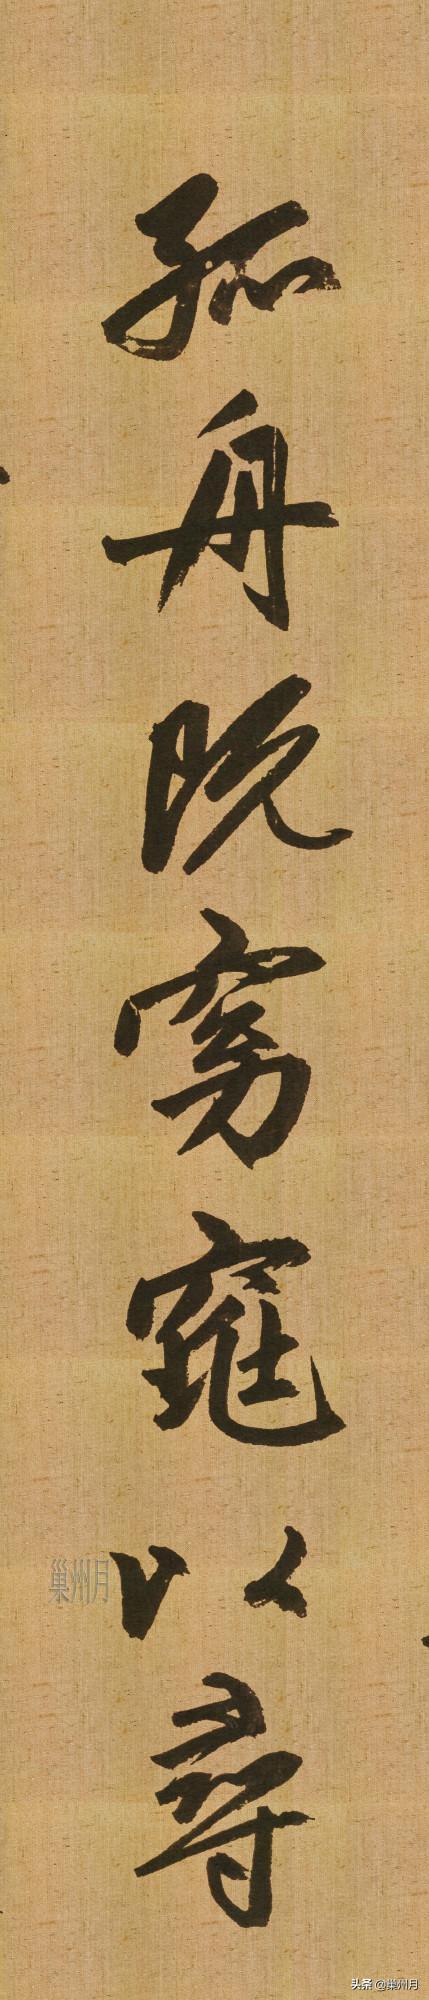 孤舟既窈窕以尋
巢州月
头条 @巢州月